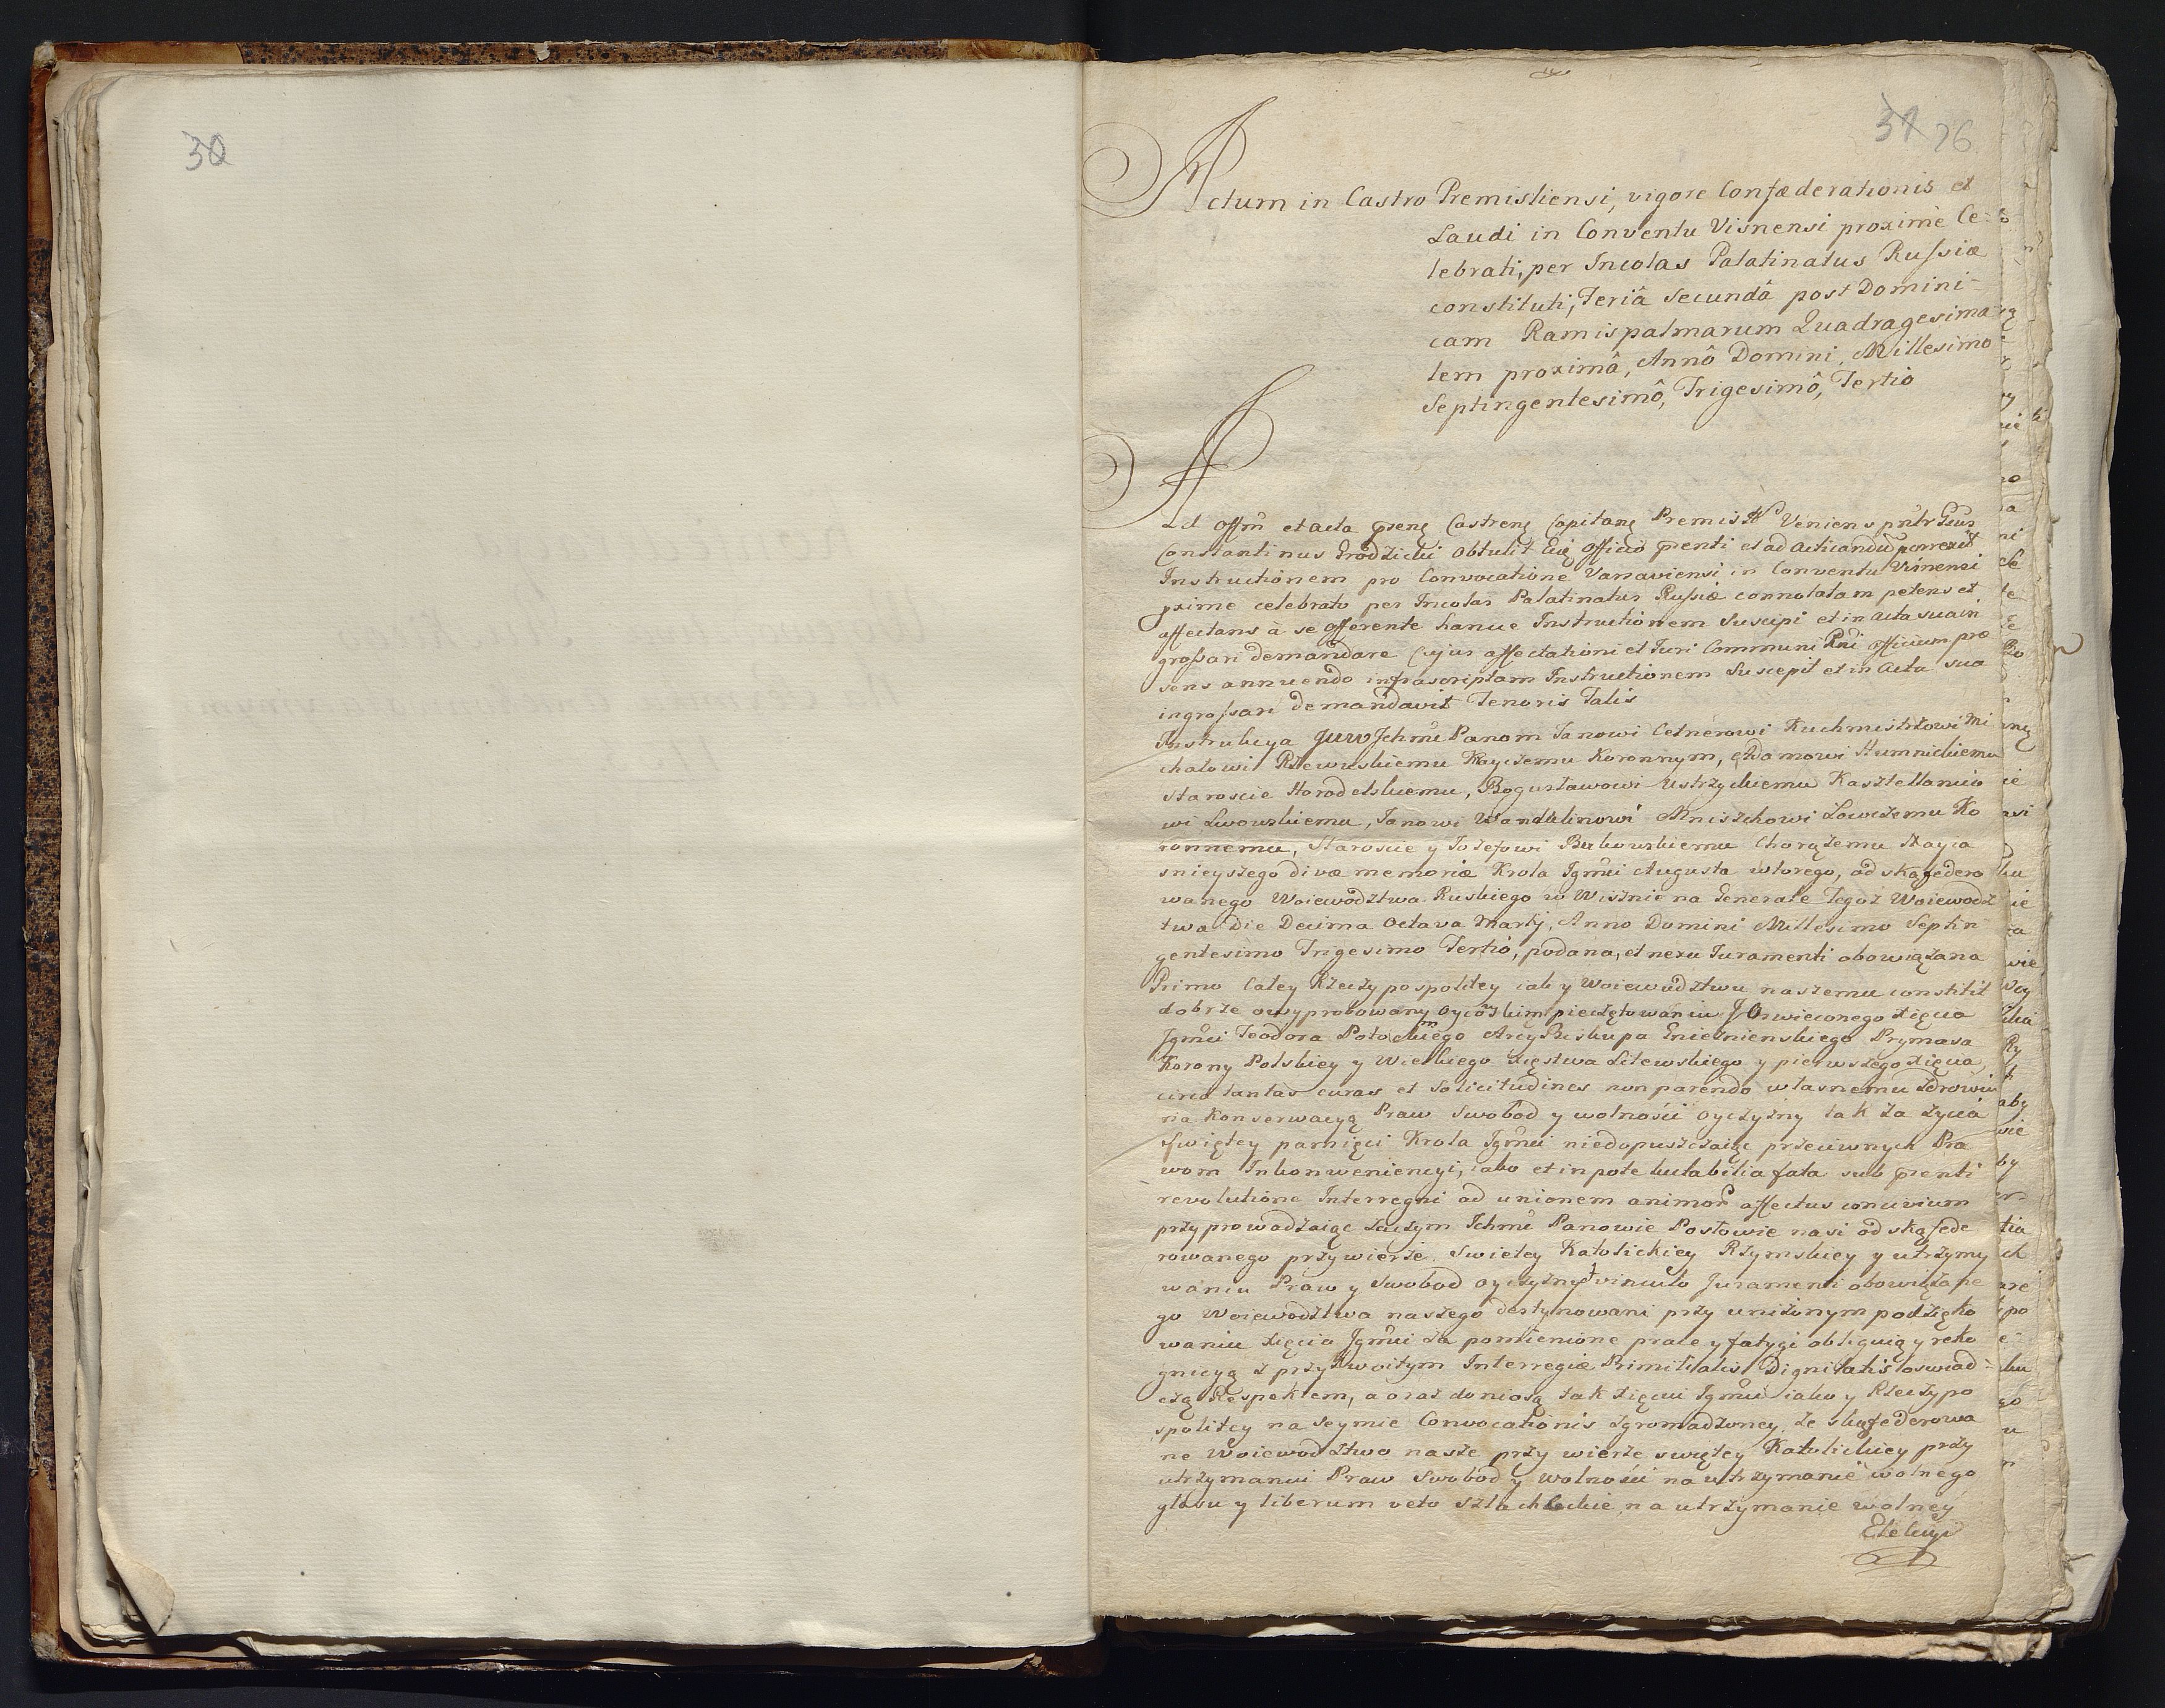 30
31 26
Actum in Castro Premisliensi, vigore Confæderationis et
Laudi in Conventu Visnensi proxime Ce-
lebrati, per Incolas Palatinatus Russiæ
constituti, Feriâ Secundâ post Domini-
cam Ramispalmarum Quadragesima
lem proximâ, Annô Domini, Millesimo
Septingentesimô, Trigesimô, Tertio
Ad Offm et acta Castren Capitan Premisl Veniens
Constantinus Grodzicki obtulit Officio et ad acticandu porrexit
Instructionem pro Convocatione Varsaviensi in Conventu Visnensi
pxime celebrato per Incolas Palatinatus Russiæ connotatam petens et
affectans à se offerente hancce Instructionem Suscipi et in acta sua in
grossari demandare Cujus affectationi et Juri Communi Officium præ
sens annuendo infrascriptam Instructionem Suscepit et in Acta sua
ingrossari demandavit Tenoris Talis
Instrukcya Jchmć Panom Janowi Cetnerowi Kuchmistrzowi Mi
chałowi Rzewuskiemu Koronnym, Adamowi Humnickiemu
Staroscie Horodelskiemu, Bogusławowi Ustrzyckiemu Kasztellanico
wi Lwowskiemu, Janowi Wandalinowi Mniszchowi Łowczemu Ko
ronnemu, Staroscie y Jozefowi Bukowskiemu Chorążemu Nayia
snieyszego divæ memoriæ Krola Jgmći Augusta wtorego, od skąfedero
wanego Woiewodztwa Ruskiego w Wiszni na Generale Tegoż Woiewodz
twa Die Decima Octava Martij, Anno Domini Millesimo Septin
gentesimo Trigesimo Tertio, podana, et nexu Juramenti obowiązana
Primo Całey Rzeczypospolitey iak y Woiewodztwu naszemu constitit
dobrze o wyprobowanym oycowskim pieczętowaniu J Oswieconego Xięcia
Jgmći Teodora Potockiego Arcy Biskupa Gnieznienskiego Prymasa
Korony Polskiey y Wielkiego Xięstwa Litewskiego y pierwszego Xięcia
circa tantas curas et Solicitudines non parendo własnemu zdrowiu
na konserwacyą Praw Swobod y wolności oyczyzny tak za życia
Swiętey pamięci Krola Jgmći niedopuszczaiąc przeciwnych Pra
wom Inkonweniencyi, iako et in pote luctabilia fata sub
revolutione Interregni ad unionem animor affectus concivium
przyprowadzaiąc zaczym Ichmć Panowie Posłowie nasi od skąfede
rowanego przy wierze Swietey Katolickiey Rzymskiey y utrzymy
waniu Praw y Swobod oyczyzny vinculo Juramenti obowiązane
go Woiewodztwa naszego destynowani przy uniżonym podzięko
waniu Xięcia Jgmći za pomienione prace y fatygi obligują y reko
gnicyą z przyzwoitym Interregiæ Primitialis Dignitatis oswiad-
czą Respektem, a oraz doniosą tak Xięciu Jgmći iako y Rzeczypo
spolitey na Seymie Convocationis zgromadzoney, że skąfederowa
ne Woiewodztwo nasze przy wierze swiętey Katolickiey przy
utrzymaniu Praw Swobod y wolności na utrzymanie wolnego
głosu y liberum veto szlacheckie, na utrzymanie wolney
Elekcyi